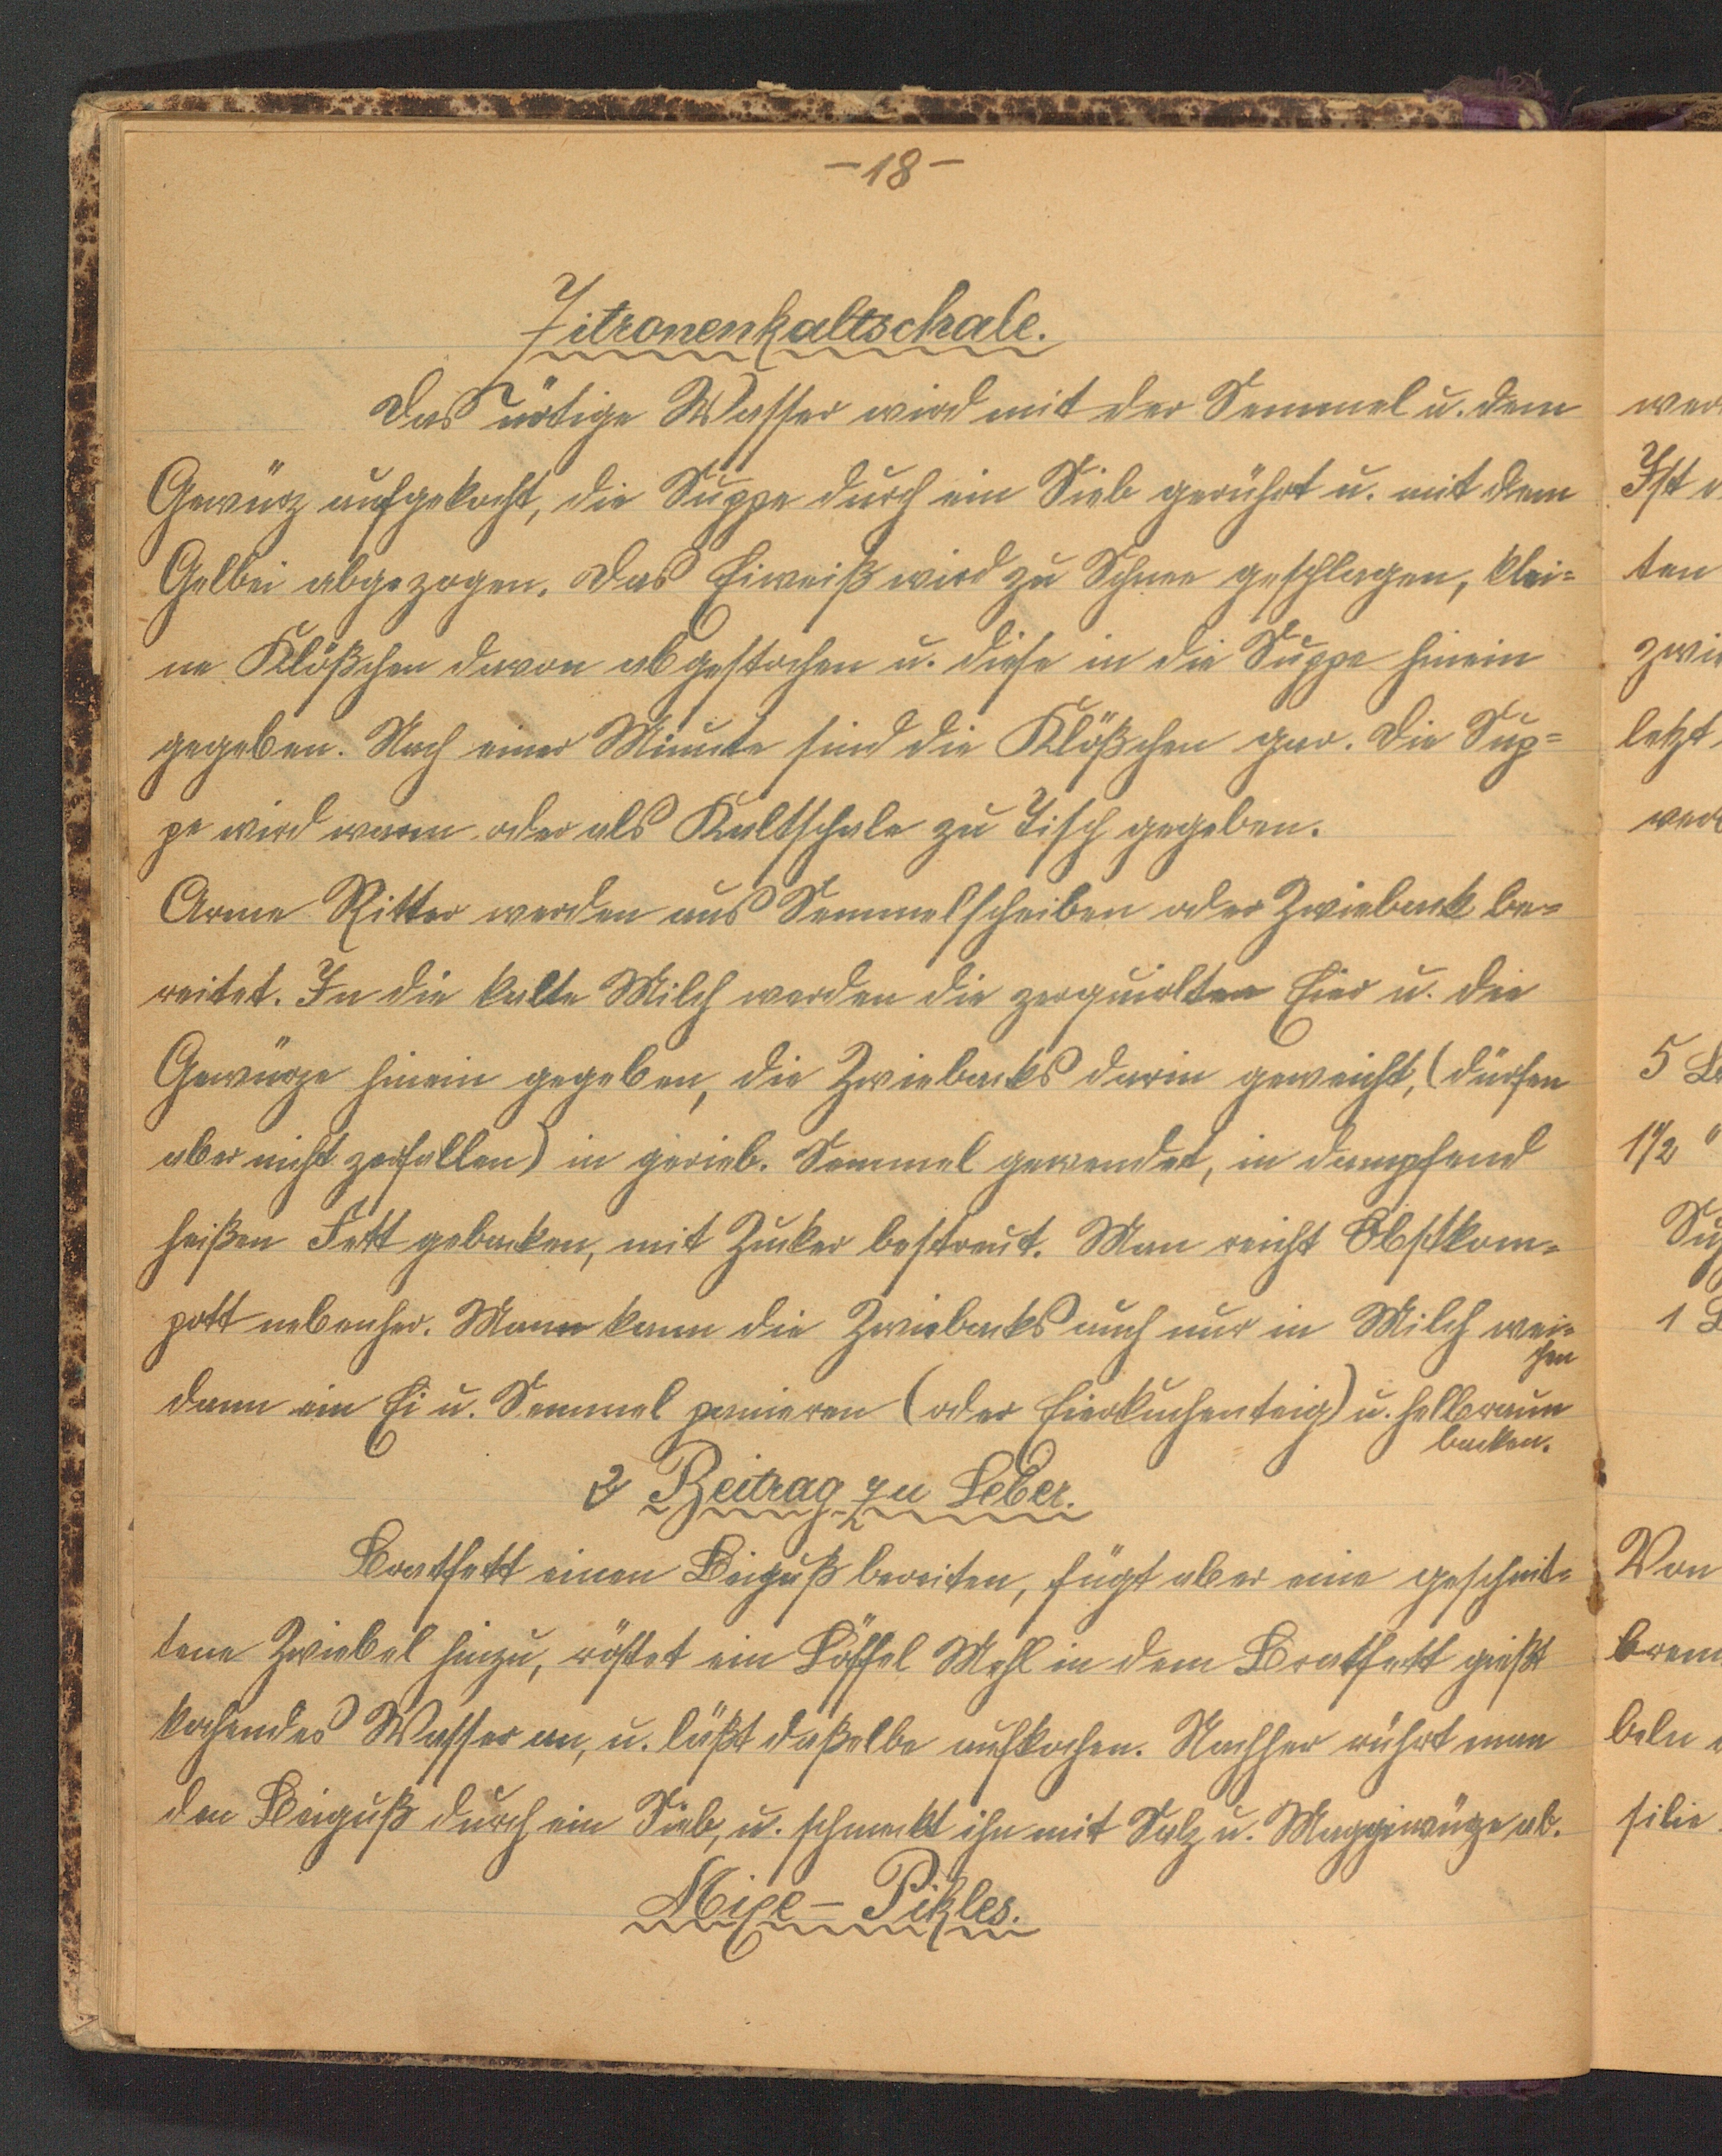 -18-
Zitronenkaltschale.
Das nötige Wasser wird mit der Semmel u. dem
Gewürz aufgekocht, die Suppe durch ein Sieb gerührt u. mit dem
Gelbei abgezogen. Das Eiweiß wird zu Schnee geschlagen, klei=
ne Klößchen davon abgestochen u. diese in die Suppe hinein
gegeben. Nach einer Minute sind die Klößchen gar. Die Sup=
pe wird warm oder als Kaltschale zu Tisch gegeben.
Arme Ritter werden aus Semmelscheiben oder Zwieback be=
reitet. In die kalte Milch werden die zerquirlten Eier u. die
Gewürze hinein gegeben, die Zwiebacks darin geweicht, (dürfen
aber nicht zerfallen) in gerieb. Semmel gewendet, in dampfend
heißen Fett gebacken, mit Zucker bestreut. Man reicht Obstkom=
pott nebenher. Mann kann die Zwiebacks auch nur in Milch wei=
chen
dann ein Ei u. Semmel panieren (oder Eierkuchenteig) u. hellbraun
backen.
2 Beitrag zu Leber.
Bratfett einen Beiguß bereiten, fügt aber eine geschnit=
tene Zwiebel hinzu, röstet ein Löffel Mehl in dem Bratfett gießt
kochendes Wasser an, u. läßt daßelbe aufkochen. Nachher rührt man
den Beiguß durch ein Sieb, u. schmeckt ihn mit Salz u. Maggiwürze ab.
Mixe - Pikles.
Ist
ten
letzt
5
1 1/2 "
1
Von
beln
silie.